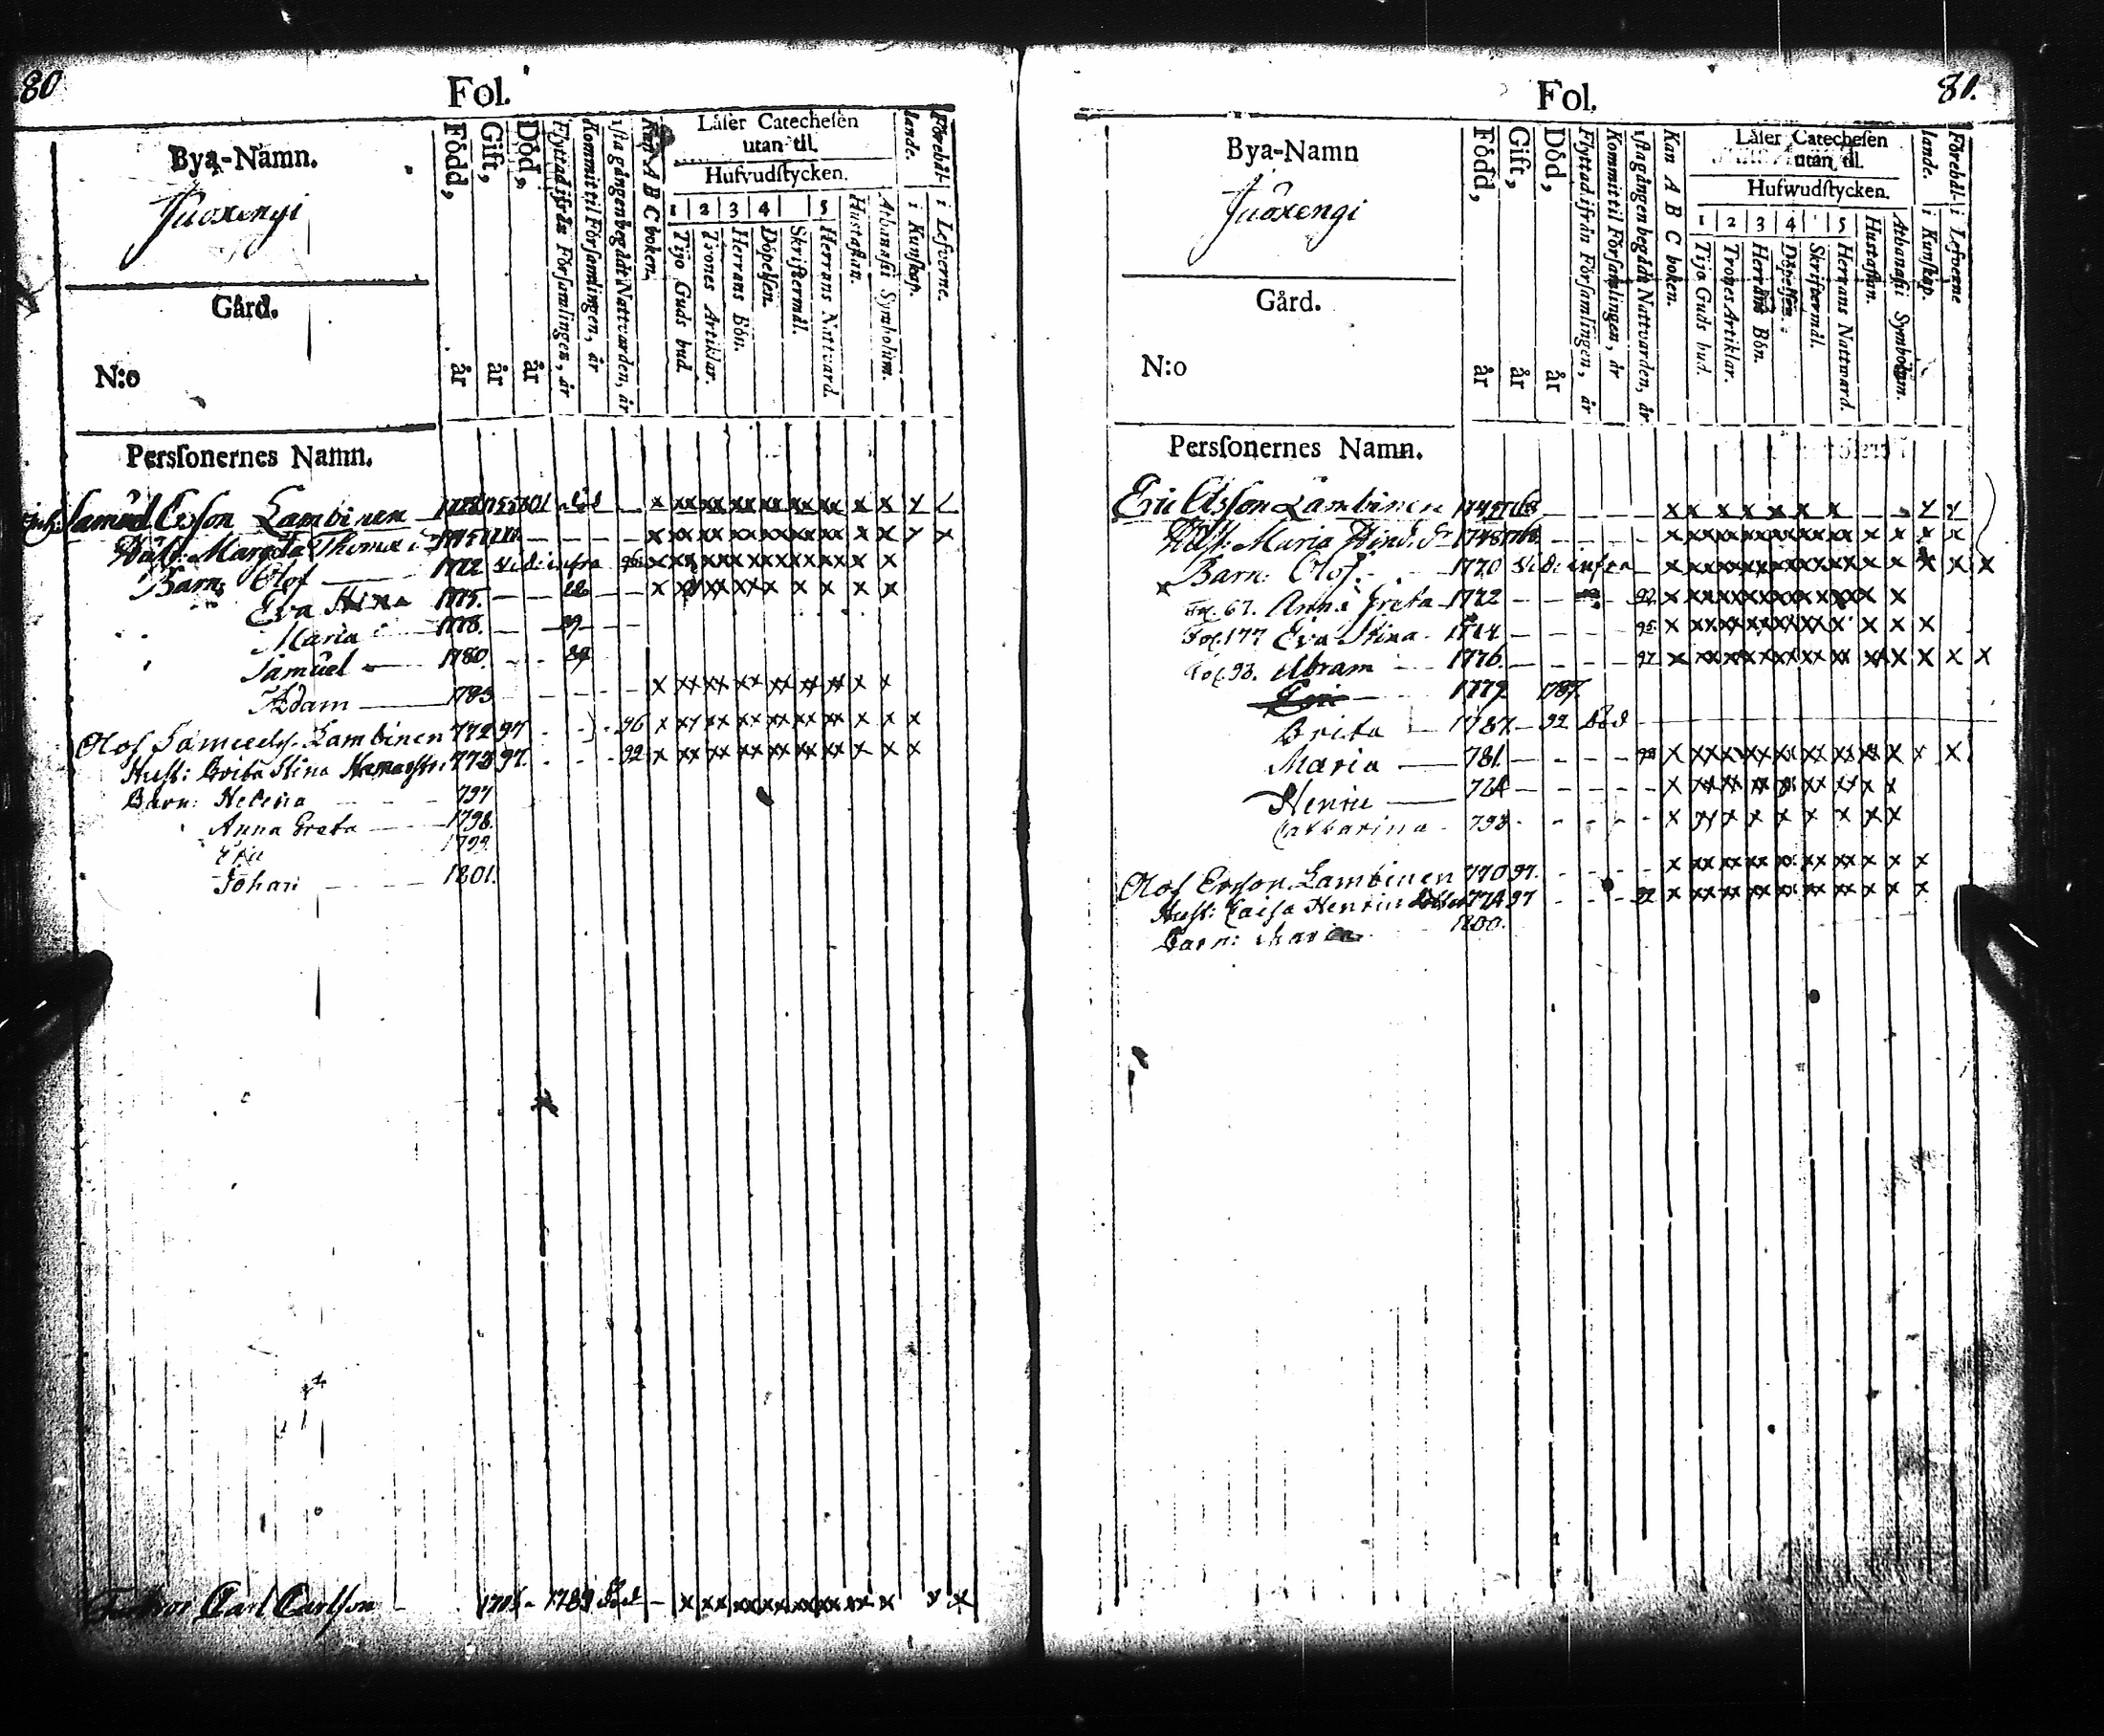 80
Fol.
Bya-Namn.
Juoxengi
Gård.
N:o
Persſonernes Namn.
Född, år
Gift, år
Död, år
Flyttad ifrån Förſamlingen, år
Kommit til Förſamlingen, år
1ſta gången begådt Nattvarden, år
Kan A B C boken.
Låſer Catecheſen utan til.
Hufvudſtycken.
1 2 3 4 5
Tijo Guds bud.
Trones Artiklar.
Herrans Bön.
Döpelſen.
Skriftermål.
Herrans Nattvard.
Hustaflan.
Athanaſii Symbolum.
Förehållande. i Kunſkap. i Lefverne.
Samuel Ersſon Lambinen
Hust: Margeta Thomæ
Barn: Olof 1772 vide infra
Eva Stina 1775.
Maria 1778.
Samuel 1780.
Adam 1783
Olof Samuels. Lambinen 772 97 96
Hust: Brita Stina 97. 92
Barn: Helena 797
Anna Greta 1798.
Eric 1799
Johan 1801.
Carl Carlſon 1789 död
81.
Fol.
Bya-Namn
Juoxengi
Gård.
N:o
Persſonernes Namn.
Född, år
Gift, år
Död, år
Flyttad ifrån Förſamlingen, år
Kommit til Förſamlingen, år
1ſta gången begådt Nattvarden, år
Kan A B C boken.
Låſer Catecheſen utan til.
Hufwudſtycken.
1 2 3 4 5
Tijo Guds bud.
Trones Artiklar.
Herrans Bön.
Döpelſen.
Skriftermål.
Herrans Nattward.
Hustaflan.
Athanaſii Symbolum.
Förehållande. i Kunſkap. i Lefverne
Eric Olsſon Lambinen
Hust: Maria Hind. dr
Barn: Olof 1770 vide infra
Fol. 67. Anna Greta 1772 92
Fol. 177 Eva Stina 95
Fol. 93. Abram 1776. 97
Eric 1779 1787.
Brita 1787 92 död
Maria 781.
Henric
Catharina 793
Olof Ersſon Lambinen 770 97.
Hust: Caisa Henrics 97
Barn: Maria 1800.